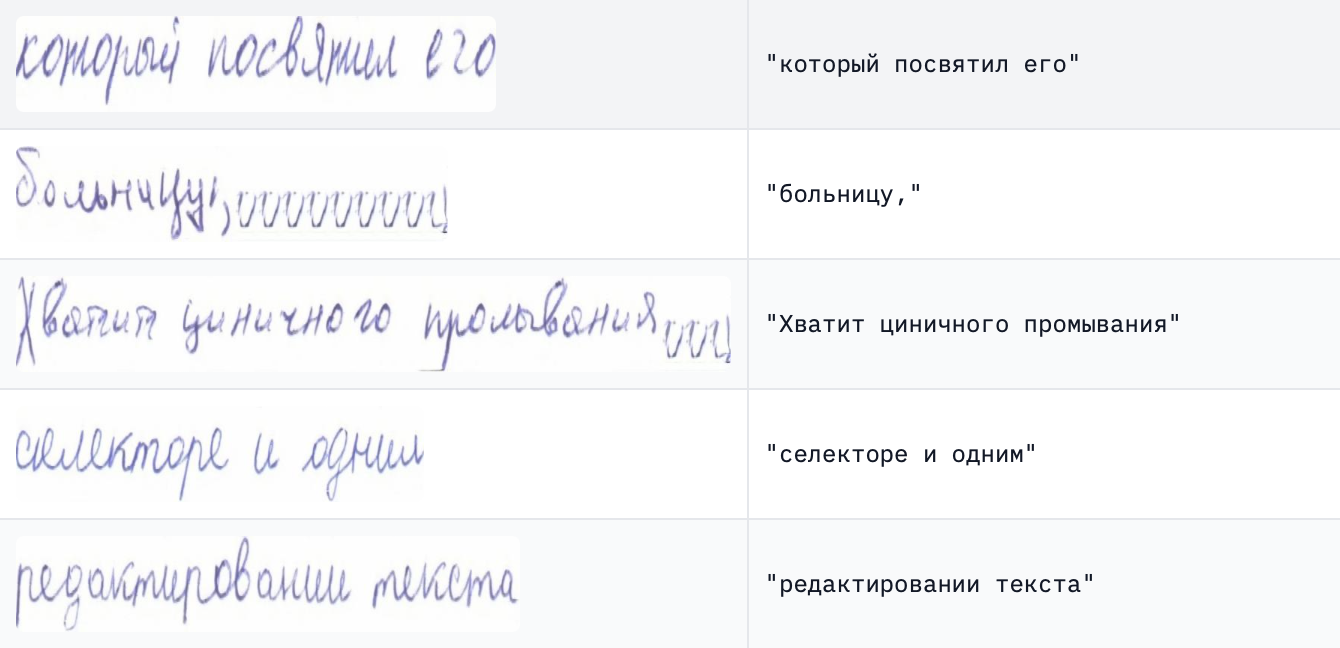 который посвятил его "который посвятил его"
больницу, "больницу,"
Хватит циничного промывания "Хватит циничного промывания"
селекторе и одним "селекторе и одним"
редактировании текста "редактировании текста"